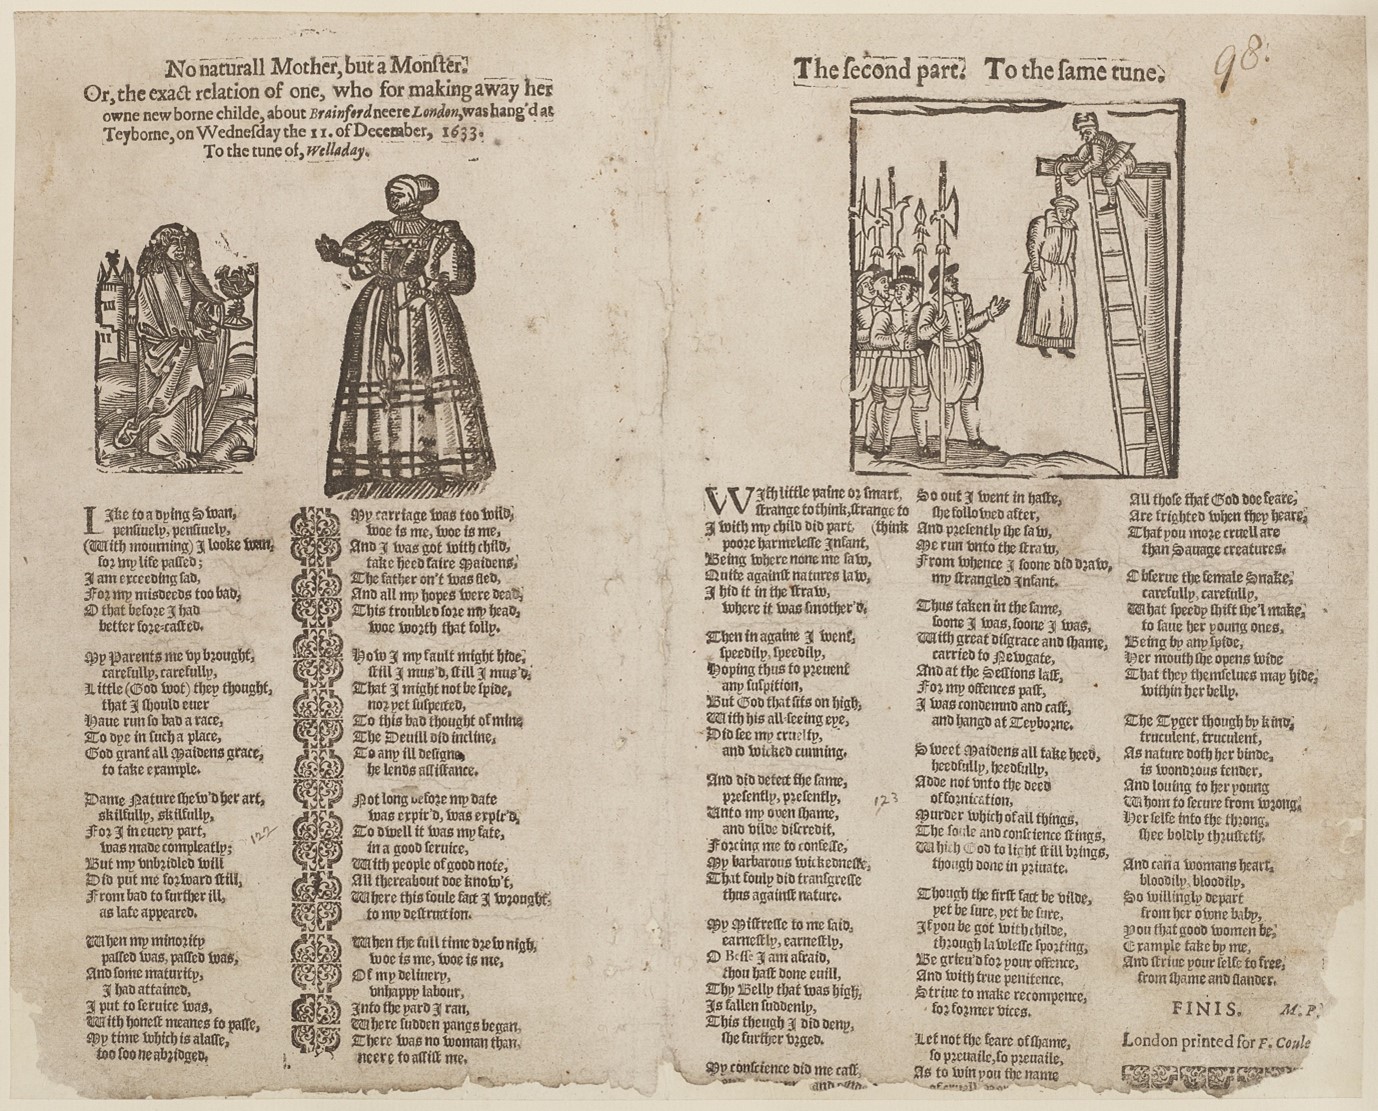 No naturall Mother, but a Monster.
Or, the exact relation of one, who for making away her
owne new borne childe, about Brainford neere London, was hang'd at
Teyborne, on Wednesday the 11. of December, 1633.
To the tune of, Welladay.
Like to a dying Swan,
pensively, pensively,
(With mourning) I looke wan,
for my life passed;
I am exceeding sad,
For my misdeeds too bad,
O that before I had
better fore-casted.
My Parents me up brought,
carefully, carefully,
Little (God wot) they thought,
that I should ever
Have run so bad a race,
To dye in such a place,
God grant all Maidens grace,
to take example.
Dame Nature shew'd her art,
skilfully, skilfully,
For I in every part,
was made compleatly;
But my unbridled will
Did put me forward still,
From bad to further ill,
as late appeared.
When my minority
passed was, passed was,
And some maturity,
I had attained,
I put to service was,
With honest meanes to passe,
My time which is alasse,
too soone abridged.
122
My carriage was too wild,
woe is me, woe is me,
And I was got with child,
take heed faire Maidens,
The father on't was fled,
And all my hopes were dead,
This troubled sore my head,
woe worth that folly.
How I my fault might hide,
still I mus'd, still I mus'd,
That I might not be spide,
nor yet suspected,
To this bad thought of mine
The Devill did incline,
To any ill designe
he lends assistance.
Not long before my date
was expir'd, was expir'd,
To dwell it was my fate,
in a good service,
With people of good note,
All thereabout doe know't,
Where this foule fact I wrought,
to my destruction.
When the full time drew nigh,
woe is me, woe is me,
Of my delivery,
unhappy labour,
Into the yard I ran,
Where sudden pangs began,
There was no woman than,
neere to assist me.
The second part. To the same tune.
98
With little paine or smart,
strange to think, strange to
I with my child did part, (think
poore harmelesse Infant,
Being where none me saw,
Quite against natures law,
I hid it in the straw,
where it was smother'd.
Then in againe I went,
speedily, speedily,
Hoping thus to prevent
any suspition,
But God that sits on high,
With his all-seeing eye,
Did see my cruelty,
and wicked cunning.
And did detect the same,
presently, presently,
Unto my open shame,
and vilde discredit,
Forcing me to confesse,
My barbarous wickednesse,
That fouly did transgresse
thus against nature.
My Mistresse to me said,
earnestly, earnestly,
O Besse I am afraid,
thou hast done evill,
Thy Belly that was high,
Is fallen suddenly,
This though I did deny,
she further urged.
My conscience did me cast,
123
So out I went in haste,
she followed after,
And presently she saw,
Me run unto the straw,
From whence I soone did draw,
my strangled Infant.
Thus taken in the same,
soone I was, soone I was,
With great disgrace and shame,
carried to Newgate,
And at the Sessions last,
For my offences past,
I was condemnd and cast,
and hangd at Teyborne.
Sweet Maidens all take heed,
heedfully, heedfully,
Adde not unto the deed
of fornication,
Murder which of all things,
The soule and conscience stings,
Which God to light still brings,
though done in private.
Though the first fact be vilde,
yet be sure, yet be sure,
If you be got with childe,
through lawlesse sporting,
Be griev'd for your offence,
And with true penitence,
Strive to make recompence,
for former vices.
Let not the feare of shame,
so prevaile, so prevaile,
As to win you the name
All those that God doe feare,
Are frighted when they heare,
That you more cruell are
than Savage creatures.
Observe the female Snake,
carefully, carefully,
What speedy shift she'l make,
to save her young ones,
Being by any spide,
Her mouth she opens wide
That they themselves may hide,
within her belly.
The Tyger though by kind,
truculent, truculent,
As nature doth her binde,
is wondrous tender,
And loving to her young
Whom to secure from wrong,
Her selfe into the throng,
shee boldly thrusteth.
And can a womans heart,
bloodily, bloodily,
So willingly depart
from her owne baby,
You that good women be,
Example take by me,
And strive your selfe to free,
from shame and slander.
FINIS. M. P.
London printed for F. Coule